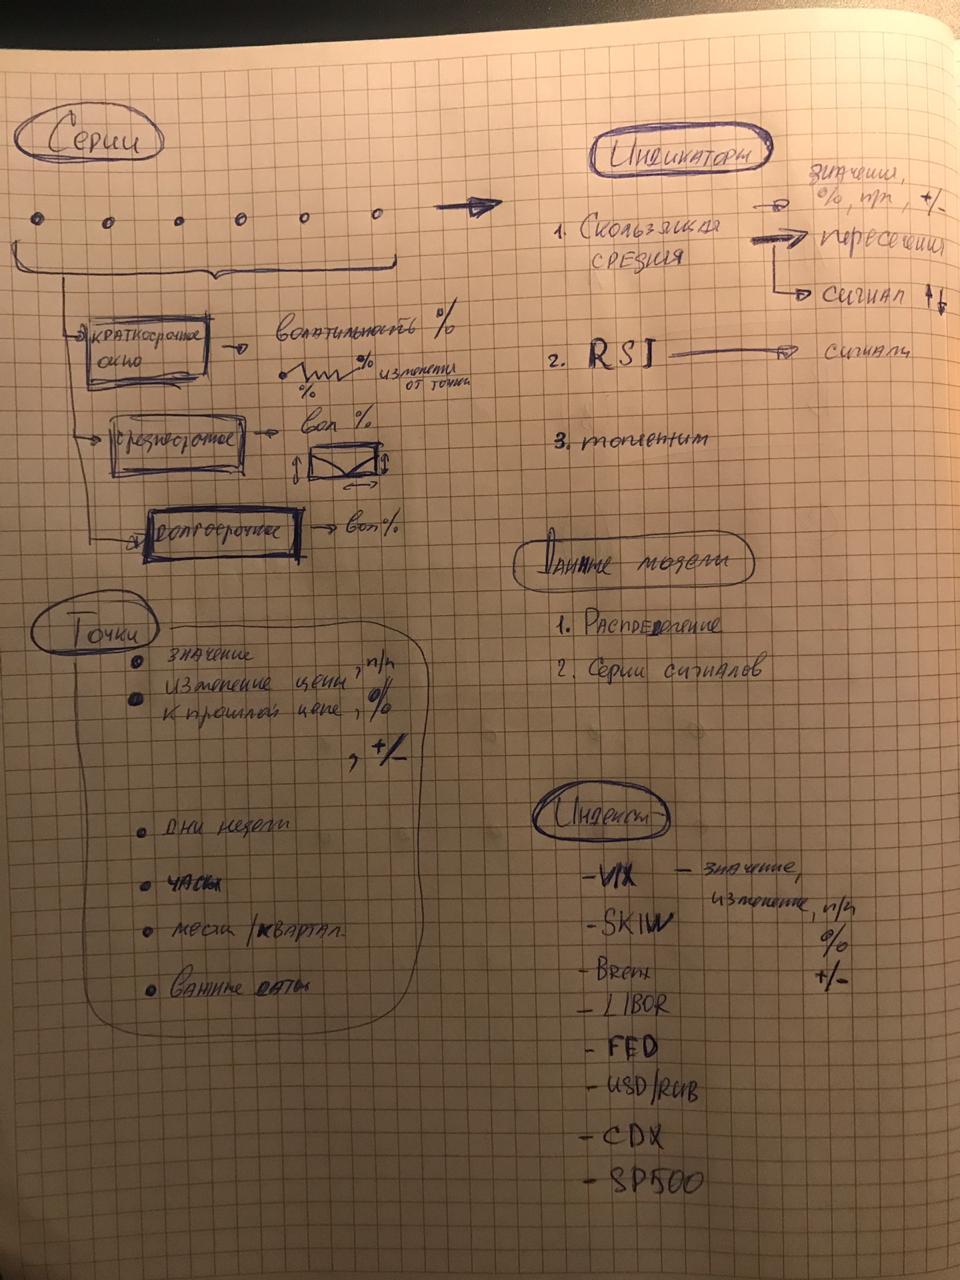 Серии
краткосрочное
окно
Волатильность %
%
%
изменения
от точки
среднесрочное
Вол %
долгосрочное
Вол %
Точки
значение
изменение цены, п/п
к прошлой цене, %
, +/-
дни недели
часы
месяц / квартал
Важные даты
Индикаторы
1. Скользящая
средняя
значения,
%, пп, +/-
пересечения
сигнал
2. RSI
сигналы
3. моментум
Данные модели
1. Распределение
2. Серии сигналов
Индексы
- VIX - значение,
изменение, п/п
%
+/-
- SKIW
- Brent
- LIBOR
- FED
- USD/RUB
- CDX
- SP500